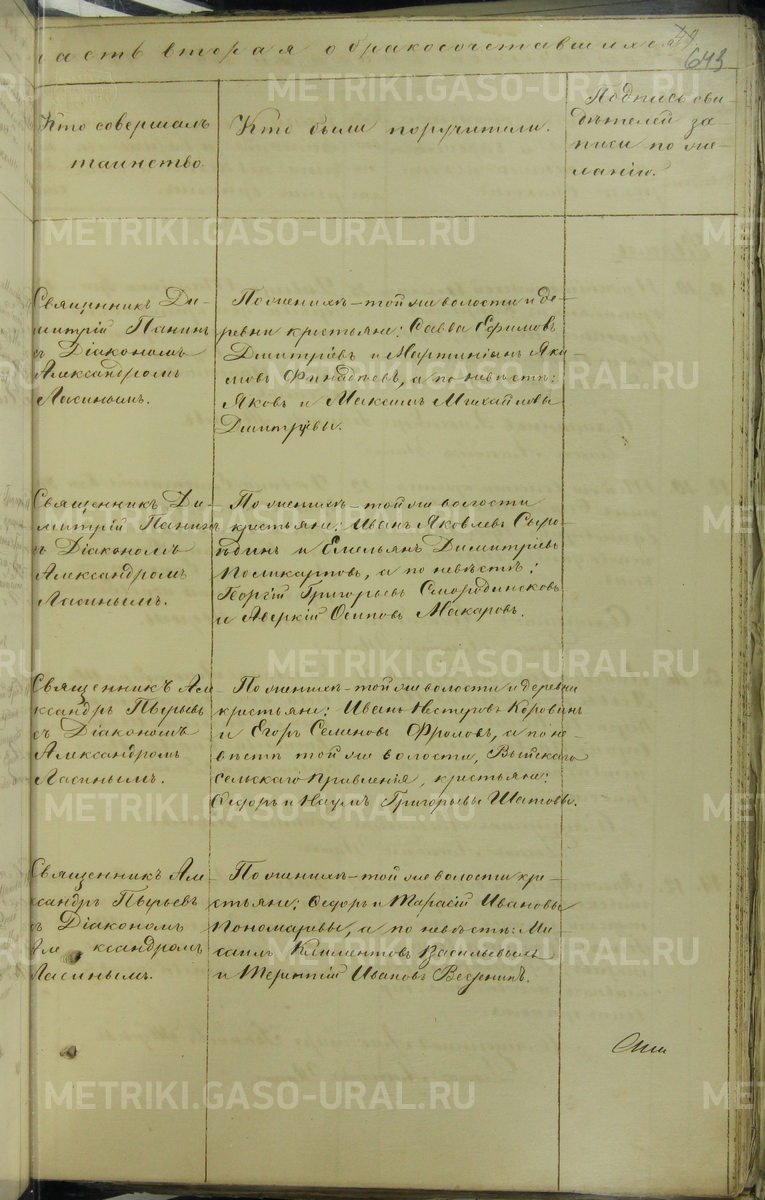 асть вторая о бракосочетавшихся
643
Кто совершалъ
таинство.
Кто были поручители.
Подпись сви-
дѣтелей за
писи по же-
ланію.
Священникъ Ди-
митрій Панинъ
съ Діакономъ
Александромъ
Ласинымъ.
По женихѣ – той же волости и де-
ревни крестьяне: Савва Ефимовъ
Дмитріевъ и Мартиніанъ Яки-
мовъ Финадѣевъ, а по невѣстѣ:
Яковъ и Максимъ Михайловы
Дмитріевы.
Священникъ Ди-
митрій Панинъ
съ Діакономъ
Александромъ
Ласинымъ.
По женихѣ – той же волости
крестьяне: Иванъ Яковлевъ Сыро-
ѣдинъ и Емельянъ Димитріевъ
Поликарповъ, а по невѣстѣ:
Георгій Григорьевъ Смородинсковъ
и Аверкій Осиповъ Макаровъ.
Священникъ Але-
ксандръ Пырьевъ
съ Діакономъ
Александромъ
Ласинымъ.
По женихѣ – той же волости и деревни
крестьяне: Иванъ Нестеровъ Коровинъ
и Егоръ Семеновъ Фроловъ, а по не-
вѣстѣ той же волости, Выйскаго
сельскаго правленія, крестьяне:
Ѳедоръ и Наумъ Григорьевы Шатовы.
Священникъ Але-
ксандръ Пырьевъ
съ Діакономъ
Александромъ
Ласинымъ.
По женихѣ – той же волости кре-
стьяне: Ѳедоръ и Тарасій Ивановы
Пономаревы, а по невѣстѣ: Ми-
саилъ Климентовъ Васильевыхъ
и Терентій Ивановъ
METRIKI.GASO-URAL.RU